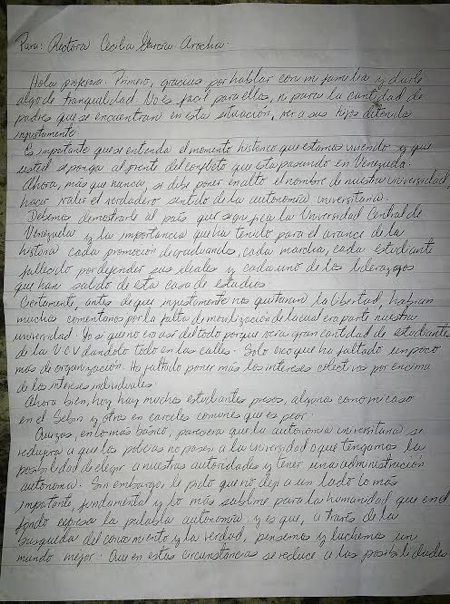 Para: Rectora Cecilia García Arocha.
Hola profesora. Primero, gracias por hablar con mi familia y darle
algo de tranquilidad. No es facil para ellos, ni para la cantidad de
padres que se encuentran en esta situación, ver a sus hijos detenidos
injustamente.
Es importante que se entienda el momento histórico que estamos viviendo y que
usted se ponga al frente del conflicto que esta pasando en Venezuela.
Ahora, más que nunca, se debe poner en alto el nombre de nuestra universidad,
hacer valer el verdadero sentido de la autonomía universitaria.
Debemos demostrarle al país que significa la Universidad Central de
Venezuela y la importancia que ha tenido para el avance de la
historia cada promoción de graduandos, cada marcha, cada estudiante
fallecido por defender sus ideales y cada uno de los liderazgos
que han salido de esta casa de estudios.
Ciertamente, antes de que injustamente nos quitaran la libertad, habian
muchos comentarios por la falta de movilización de la cual era parte nuestra
universidad. Yo se que no era así del todo porque veia gran cantidad de estudiantes
de la UCV dandolo todo en las calles. Solo creo que ha faltado un poco
más de organización. Ha faltado poner más los intereses colectivos por encima
de los intereses individuales.
Ahora bien, hoy hay muchos estudiantes presos, algunos como mi caso
en el Sebin y otros en carceles comunes que es peor.
Quizas, en lo más básico, pareciera que la autonomía universitaria se
redujera a que los policías no pasen a la universidad o que tengamos la
posibilidad de elegir a nuestras autoridades y tener una administración
autonoma. Sin embargo, le pido que no deje a un lado lo más
importante, fundamental y lo más sublime para la humanidad que en el
fondo expresa la palabra autonomía: y es que, a través de la
busqueda del conocimiento y la verdad, pensemos y luchemos un
mundo mejor. Que en estas circunstancias se reduce a las posibilidades